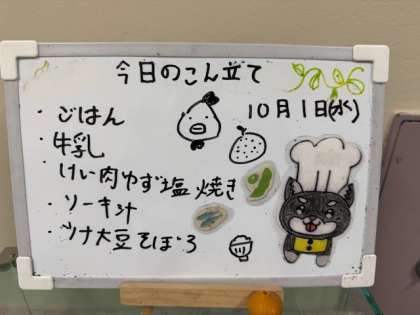 今日のこん立て
10月1日(水)
・ごはん
・牛乳
・けい肉ゆず塩焼き
・ソーキ汁
・ツナ大豆そぼろ